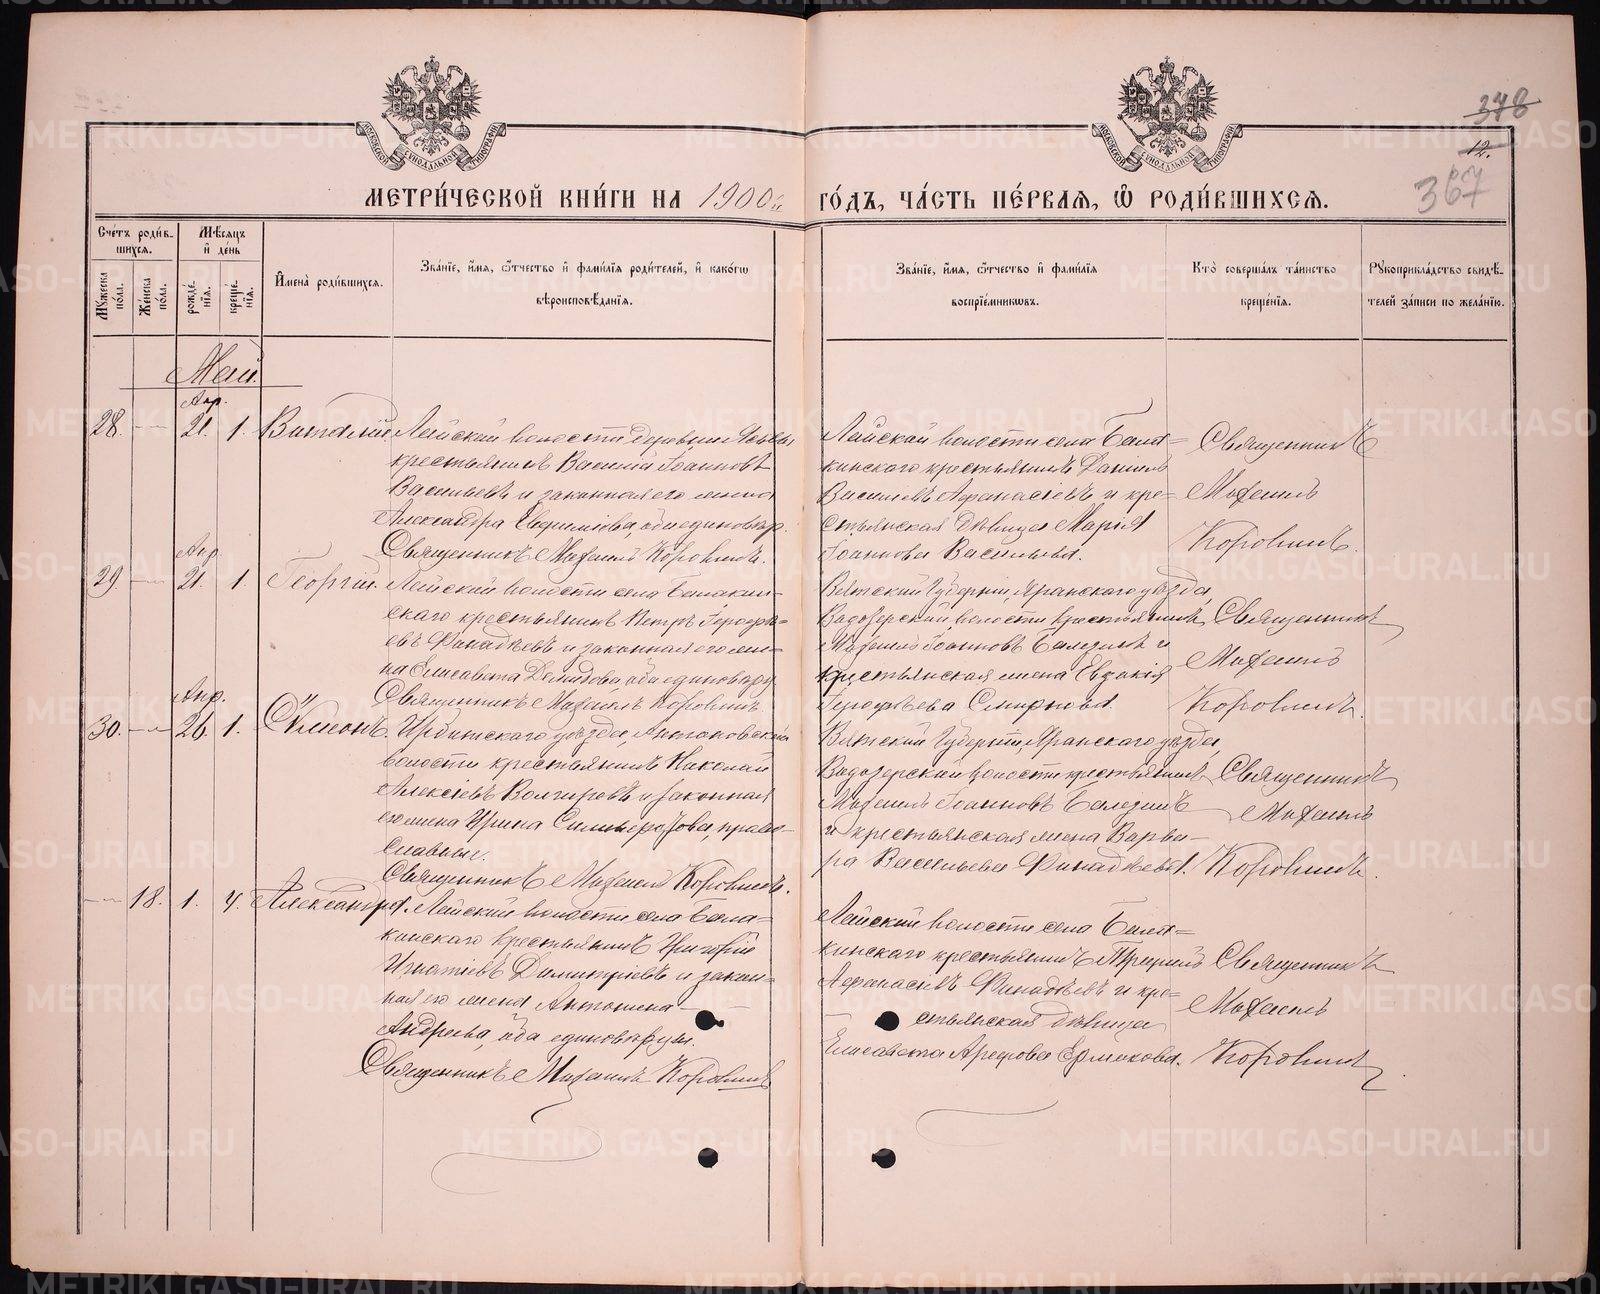 378
12.
367
МЕТРИ́ЧЕСКОЙ КНИ́ГИ НА 1900й ГО́ДЪ, ЧА́СТЬ ПЕ́РВАЯ, Ѡ РОДИ́ВШИХСЯ.
Сче́тъ роди́в-
шихся.
Мѣ́сяцъ
и де́нь
Му́жеска по́ла.
Же́нска по́ла.
рожде́-
нїя.
креще́-
нїя.
Имена̀ роди́вшихся.
Зва́нїе, и́мя, ѻ́тчество и фами́лїя роди́телей, и како́гѡ
вѣроисповѣ́данїя.
Зва́нїе, и́мя, ѻ́тчество и фами́лїя
воспрїе́мниковъ.
Кто̀ соверша́лъ та́инство
креще́нїя.
Рукоприкла́дство свидѣ́-
телей за́писи по жела́нїю.
Май.
Апр.
28. 21. 1. Виталий
Лайской волости деревни
крестьянинъ Василій Іоанновъ
Васильевъ и законная его жена
Александра Евфиміова, оба единовѣр.
Священникъ Михаилъ Коровинъ.
Лайской волости села Бала=
кинского крестьянинъ Даніилъ
Василевъ Афанасіевъ и кре=
стьянская дѣвица Марія
Іоаннова Васильева.
Священникъ
Михаилъ
Коровинъ.
Апр.
29. 21. 1. Георгій.
Лайской волости села Балакин=
скаго крестьянинъ Петръ Іероѳе=
евъ Финадѣевъ и законная его же=
на Елисавета Демидова, оба единовѣры
Священникъ Михаилъ Коровинъ.
Вятской Губерніи, Яранскаго уѣзда,
Водозерской волости крестьянинъ
Михаилъ Іоанновъ Балезинъ и
крестьянская жена Евдокія
Іероѳѣева Смирнова.
Священникъ
Михаилъ
Коровинъ.
Апр.
30. 26. 1. Симеонъ.
Ирбитскаго уѣзда, Антоновской
волости крестьянинъ Николай
Алексіевъ Волгиревъ и законная
его жена Ирина Симфорова, право-
славные.
Священникъ Михаилъ Коровинъ.
Вятской Губерніи, Яранскаго уѣзда,
Водозерской волости крестьянинъ
Михаилъ Іоанновъ Балезинъ
и крестьянская жена Варва-
ра Васильева Финадѣева.
Священникъ
Михаилъ
Коровинъ.
18. 1. 4. Александра.
Лайской волости села Бала=
кинскаго крестьянинъ Григорій
Игнатіевъ Димитріевъ и закон=
ная его жена Антонина
Андреева, оба единовѣрцы.
Священникъ Михаилъ Коровинъ
Лайской волости села Бала=
кинскаго крестьянинъ
Афанасіевъ Финадѣевъ и кре=
стьянская дѣвица
Елисавета Арефова Ермакова.
Священникъ
Михаилъ
Коровинъ
METRIKI.GASO-URAL.RU